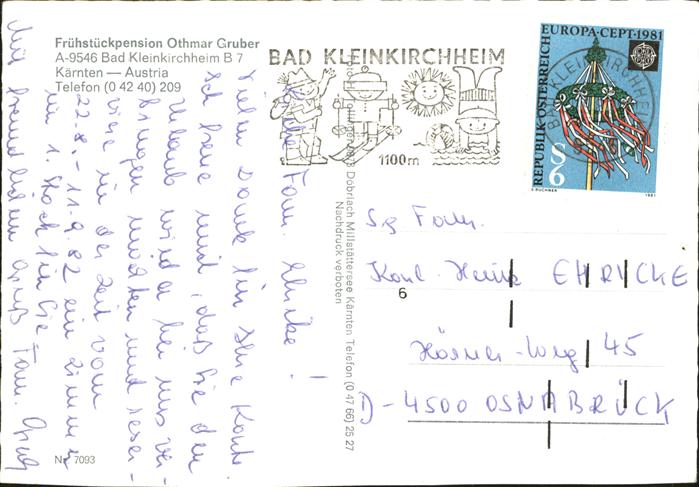 Frühstückpension Othmar Gruber
A-9546 Bad Kleinkirchheim B 7
Kärnten — Austria
Telefon (0 42 40) 209
BAD KLEINKIRCHHEIM
1100m
EUROPA-CEPT-1981
REPUBLIK ÖSTERREICH
S 6
1981
BAD KLEINKIRCHHEIM
Fam.
Vielen Dank für Ihre Karte.
Ich freue mich, daß Sie den
Urlaub wieder bei uns ver-
bringen möchten und reser-
viere in der Zeit vom
22.8.-11.9.82 ein Zimmer
im 1. Stock für Sie
Mit freundlichem Gruß Fam. Grub
Döbriach Millstättersee Kärnten Telefon (0 47 66) 25 27
Nachdruck verboten
Sg Fam.
Karl-Heinz EHRICKE
6
Weg 45
D-4500 OSNABRÜCK
Nr. 7093